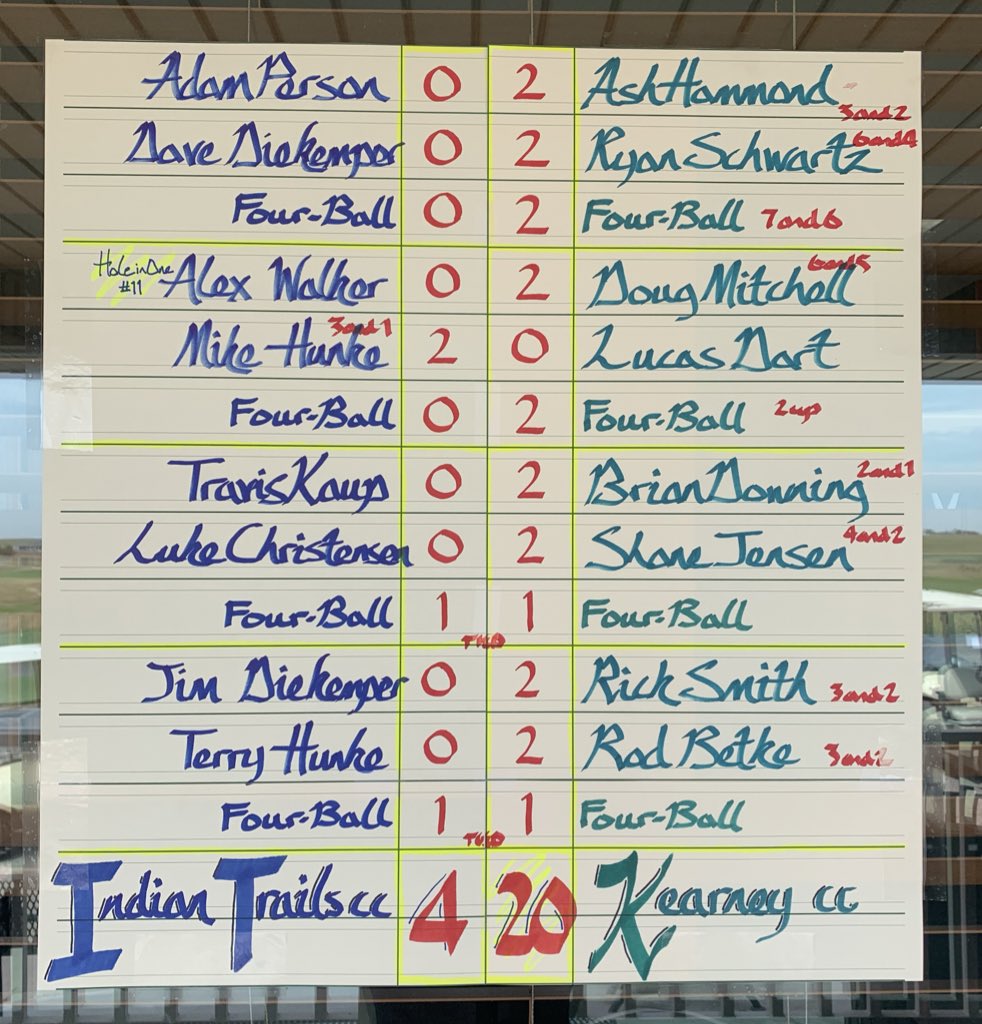 Adam Person 0 2 Ash Hammond 3 and 2
Dave Diekemper 0 2 Ryan Schwartz 6 and 4
Four-Ball 0 2 Four-Ball 7 and 6
Hole in One #11 Alex Walker 0 2 Doug Mitchell 6 and 5
Mike Hunke 3 and 1 2 0 Lucas Dart
Four-Ball 0 2 Four-Ball 2 up
Travis Kaup 0 2 Brian Donning 2 and 1
Luke Christensen 0 2 Shane Jensen 4 and 2
Four-Ball 1 TIED 1 Four-Ball
Jim Diekemper 0 2 Rick Smith 3 and 2
Terry Hunke 0 2 Rod Betke 3 and 2
Four-Ball 1 TIED 1 Four-Ball
Indian Trails cc 4 20 Kearney cc